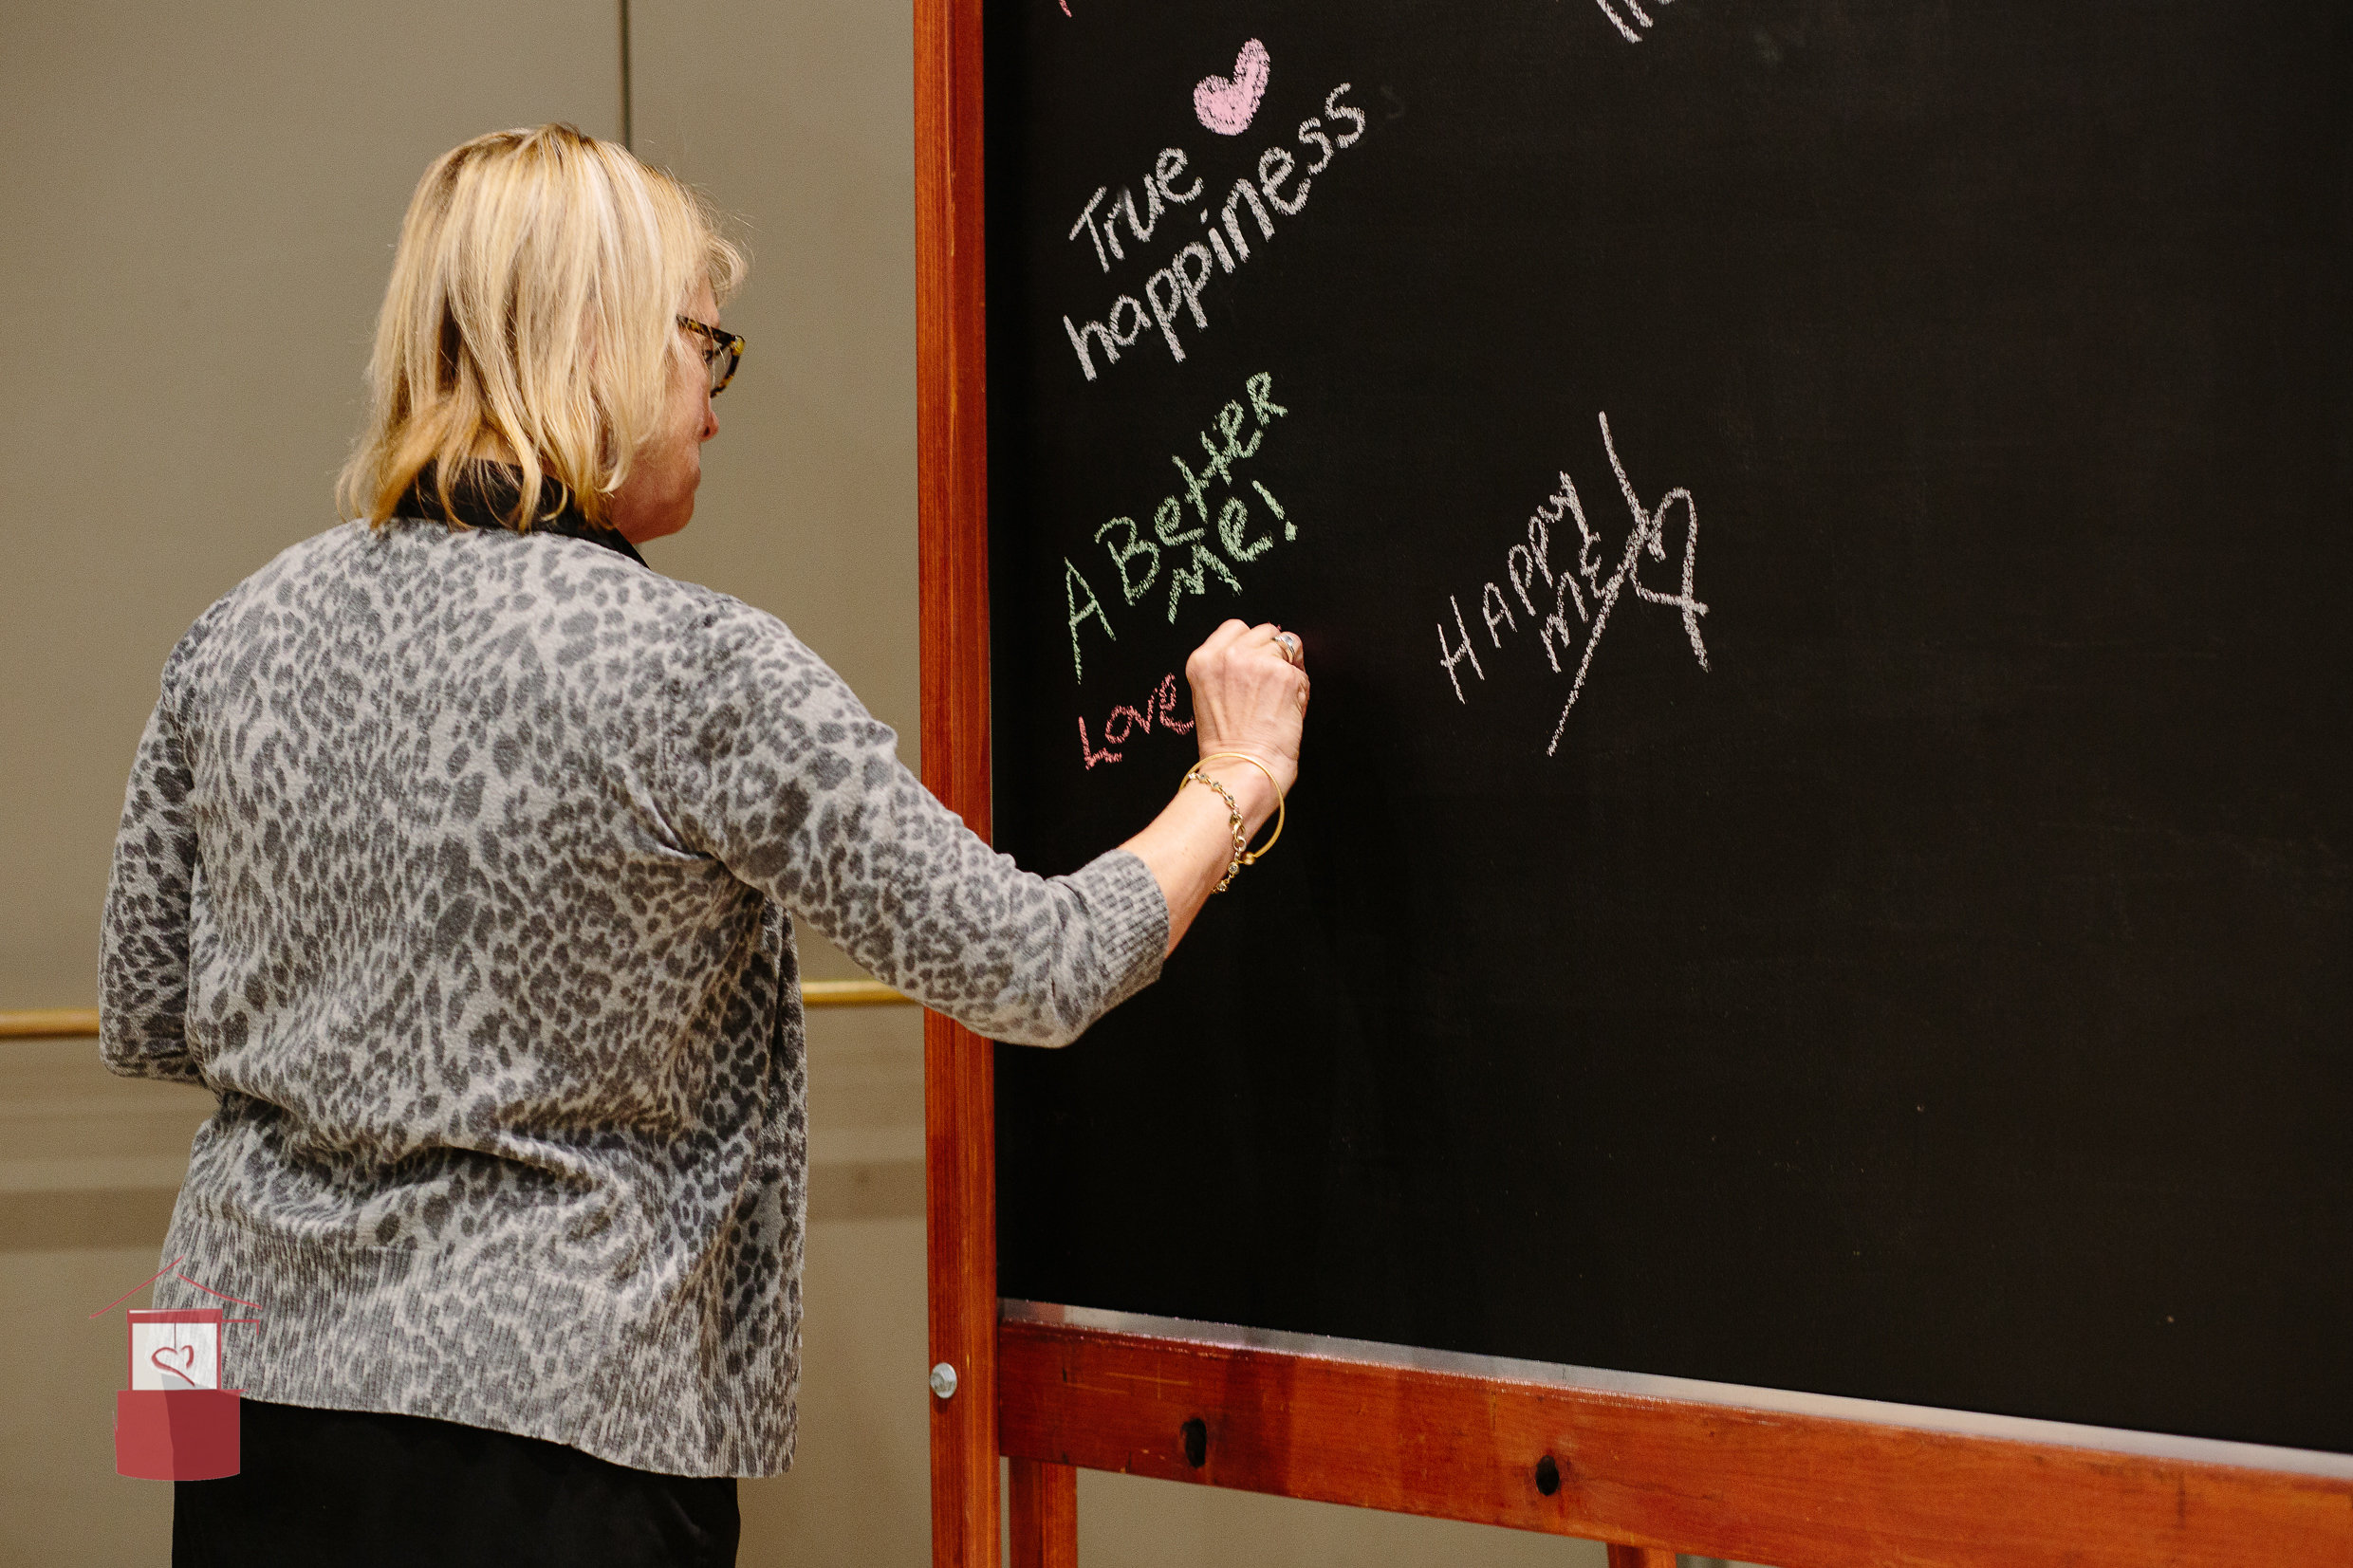 True
happiness
A Better
Me!
Love
Happy
Me!